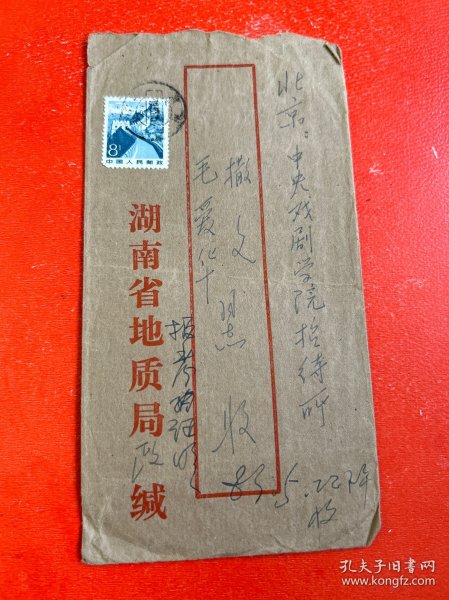 北京：中央戏剧学院招待所
撒文
毛爱华 同志 收
报考
证明
85 5.22 下午
收
湖南省地质局
缄
8分
中国人民邮政
孔夫子旧书网
www.kongfz.com